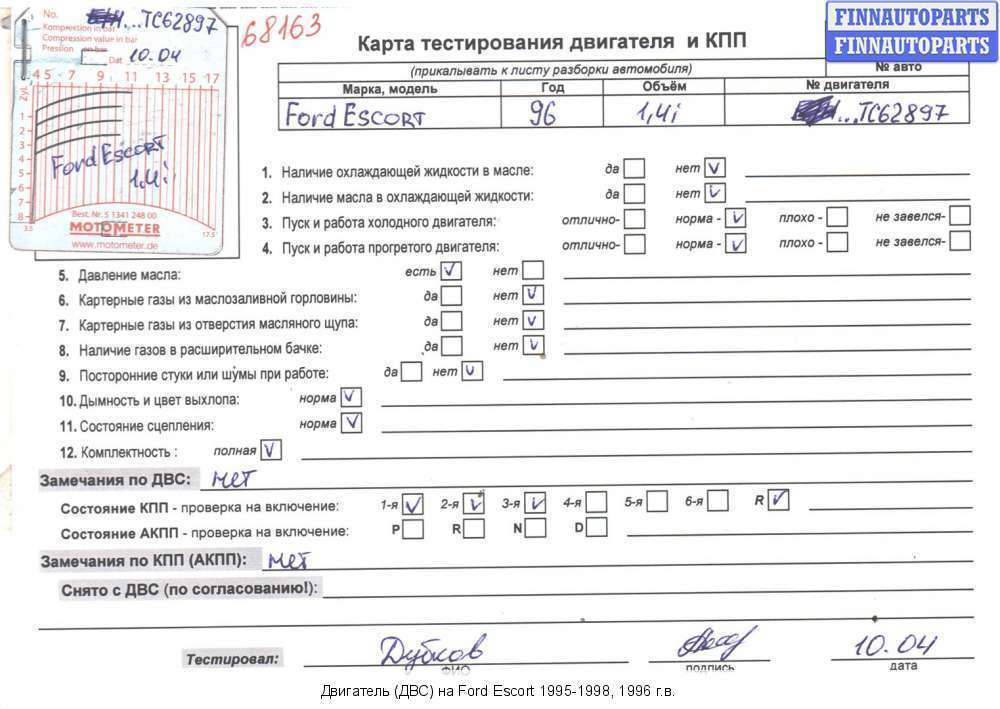 FINNAUTOPARTS
FINNAUTOPARTS
No. ...TC62897
Kompression in bar
Compression value in bar
Pression en bar
Dat. 10.04
4 5 7 9 11 13 15 17
Zyl.
1
2
3
4
5
6
7
8
3.5 17.5
Ford Escort
1,4i
Best. Nr. 5 1341 248 00
MOTOMETER
www.motometer.de
68163
Карта тестирования двигателя и КПП
(прикалывать к листу разборки автомобиля) № авто
Марка, модель Год Объём № двигателя
Ford Escort 96 1,4i ...TC62897
1. Наличие охлаждающей жидкости в масле: да нет V
2. Наличие масла в охлаждающей жидкости: да нет V
3. Пуск и работа холодного двигателя: отлично- норма - V плохо - не завелся-
4. Пуск и работа прогретого двигателя: отлично- норма - V плохо - не завелся-
5. Давление масла: есть V нет
6. Картерные газы из маслозаливной горловины: да нет V
7. Картерные газы из отверстия масляного щупа: да нет V
8. Наличие газов в расширительном бачке: да нет V
9. Посторонние стуки или шумы при работе: да нет V
10. Дымность и цвет выхлопа: норма V
11. Состояние сцепления: норма V
12. Комплектность : полная V
Замечания по ДВС: нет
Состояние КПП - проверка на включение: 1-я V 2-я V 3-я V 4-я 5-я 6-я R V
Состояние АКПП - проверка на включение: P R N D
Замечания по КПП (АКПП): нет
Снято с ДВС (по согласованию!):
Тестировал: Дубков 10.04
ФИО подпись дата
Двигатель (ДВС) на Ford Escort 1995-1998, 1996 г.в.